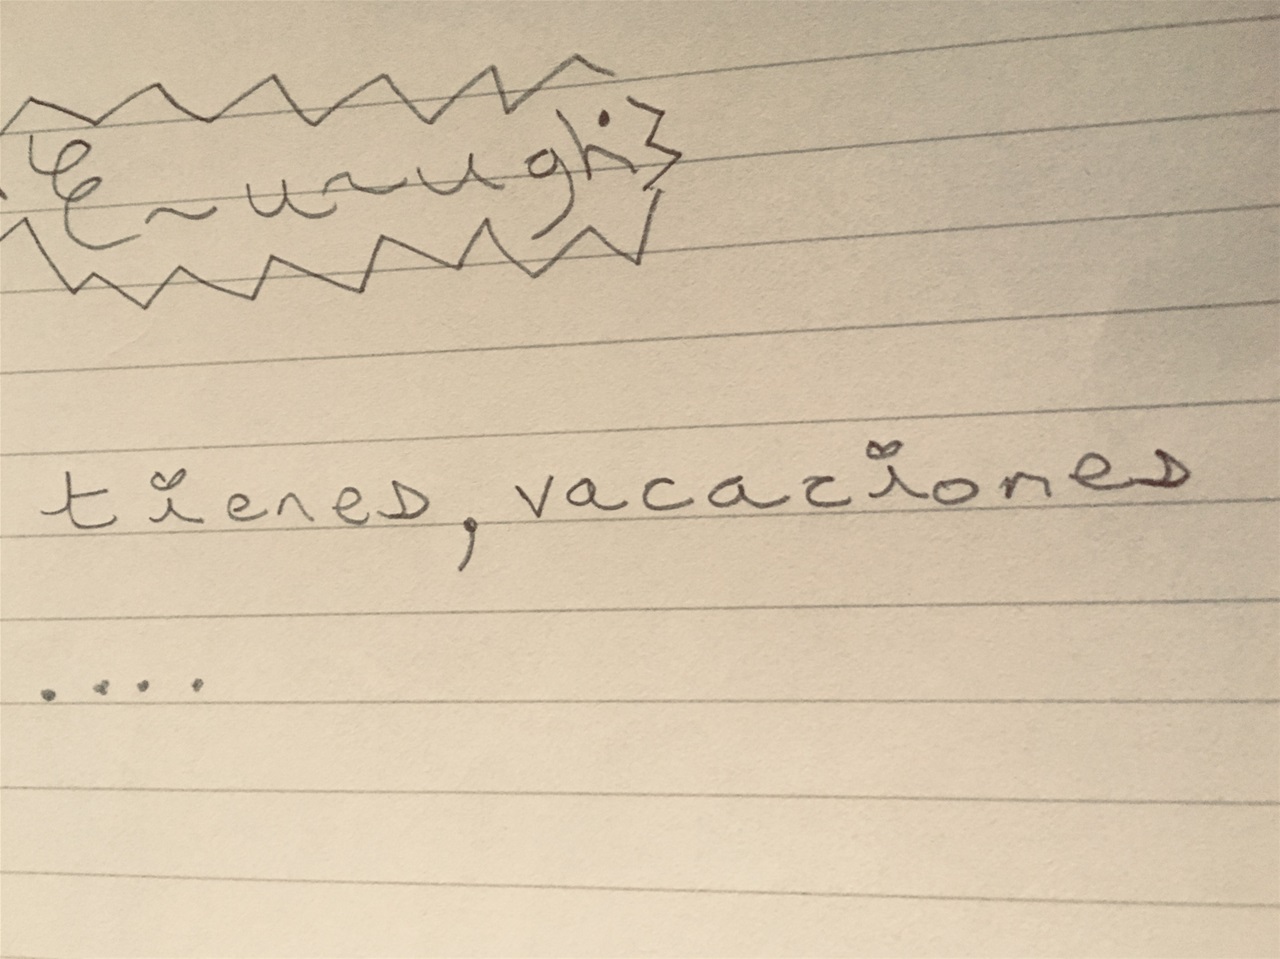 E~u~ugh
tienes, vacaciones
....